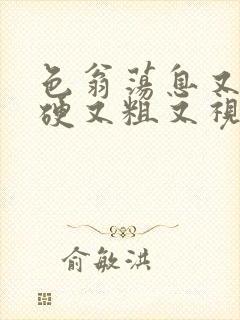 色翁荡息又
硬又粗又视
俞敏洪